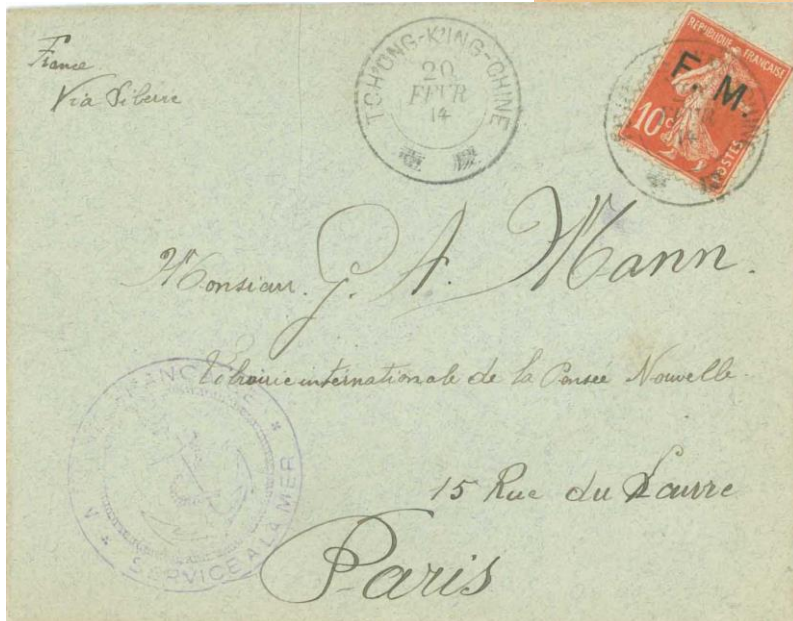 France
Via Siberie
TCH'ONG-K'ING-CHINE
20
FEVR
14
REPUBLIQUE FRANCAISE
F. M.
10c
POSTES
CHINE
14
Monsieur. J. A. Mann.
Librairie internationale de la Pensee Nouvelle
15 Rue du Louvre
Paris
FRANCAISE
SERVICE A LA MER